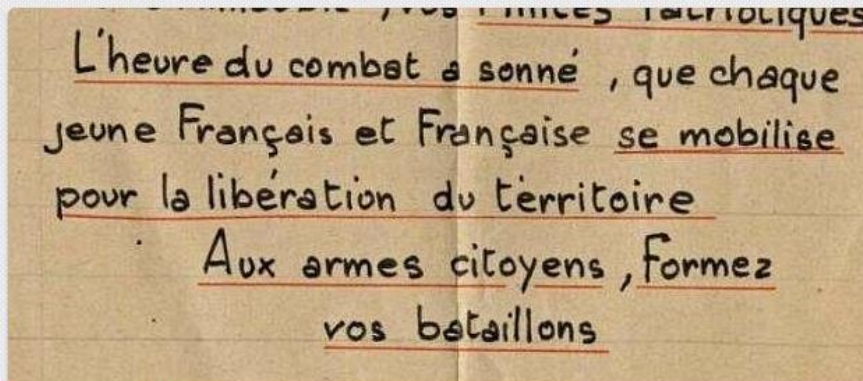 , vos Milices Patriotiques
L'heure du combat a sonné, que chaque
jeune Français et Française se mobilise
pour la libération du térritoire
Aux armes citoyens, Formez
vos bataillons